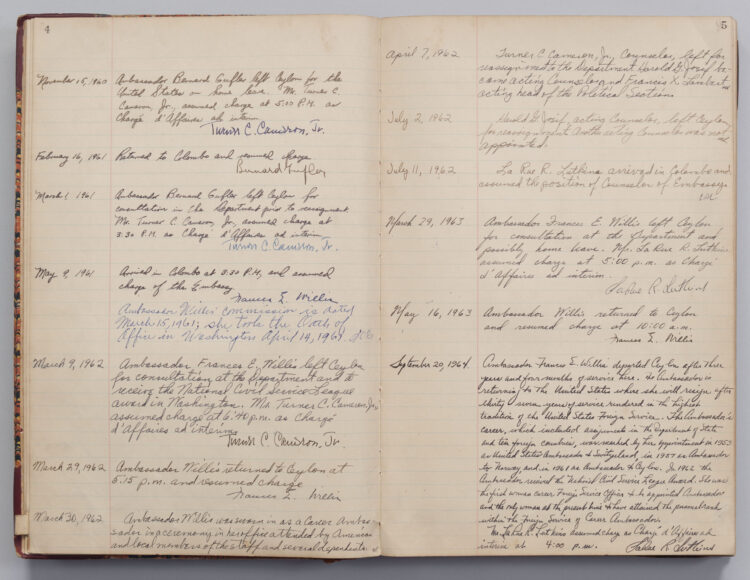 4
November 15, 1960
Ambassador Bernard Gufler left Ceylon for the
United States on home leave. Mr. Turner C.
Cameron, Jr., assumed charge at 5:00 P.M. as
Chargé d'Affaires ad interim
Turner C. Cameron, Jr.
February 16, 1961
Returned to Colombo and resumed charge
Bernard Gufler
March 1, 1961
Ambassador Bernard Gufler left Ceylon for
consultation in the Department prior to reassignment.
Mr. Turner C. Cameron, Jr. assumed charge at
3:30 P.M. as Chargé d'Affaires ad interim
Turner C. Cameron, Jr.
May 9, 1961
Arrived in Colombo at 3:30 P.M., and assumed
charge of the Embassy
Frances E. Willis
Ambassador Willis' commission is dated
March 15, 1961; she took the Oath of
Office in Washington April 14, 1961.
March 9, 1962
Ambassador Frances E. Willis left Ceylon
for consultation at the Department and to
receive the National Civil Service League
award in Washington. Mr. Turner C. Cameron, Jr.,
assumed charge at P.M. as Chargé
d'Affaires ad interim
Turner C. Cameron, Jr.
March 29, 1962
Ambassador Willis returned to Ceylon at
5:15 p.m. and resumed charge
Frances E. Willis
March 30, 1962
Ambassador Willis was sworn in as a Career Ambas-
sador in a ceremony in her office attended by American
and local members of the staff and several dependents.
5
April 7, 1962
Turner C. Cameron, Jr., Counselor, left for
reassignment to the Department. Harold G. Josif be-
came acting Counselor and Francis X. Lambert
acting head of the Political Section.
July 2, 1962
Harold G. Josif, acting Counselor, left Ceylon
for reassignment. Another acting Counselor was not
appointed.
July 11, 1962
La Rue R. Lutkins arrived in Colombo and
assumed the position of Counselor of Embassy.
March 29, 1963
Ambassador Frances E. Willis left Ceylon
for consultation at the Department and
possibly some leave. Mr. La Rue R. Lutkins
assumed charge at 5:00 p.m. as Chargé
d'Affaires ad interim.
LaRue R. Lutkins
May 16, 1963
Ambassador Willis returned to Ceylon
and resumed charge at 10:00 a.m.
Frances E. Willis
September 20, 1964
Ambassador Frances E. Willis departed Ceylon after three
years and four months of service here. The Ambassador is
returning to the United States where she will resign after
thirty seven years of service rendered in the highest
tradition of the United States Foreign Service. The Ambassador's
career, which included assignments in the Department of State
and ten foreign countries, was marked by her appointment in 1953
as United States Ambassador to Switzerland, in 1957 as Ambassador
to Norway and in 1961 as Ambassador to Ceylon. In 1962 the
Ambassador received the National Civil Service League Award. She was
the first woman career Foreign Service Officer to be appointed Ambassador
and the only woman at the present time to have attained the personal rank
within the Foreign Service of Career Ambassador.
Mr. LaRue R. Lutkins assumed charge as Chargé d'Affaires ad
interim at 4:00 p.m.
LaRue R. Lutkins